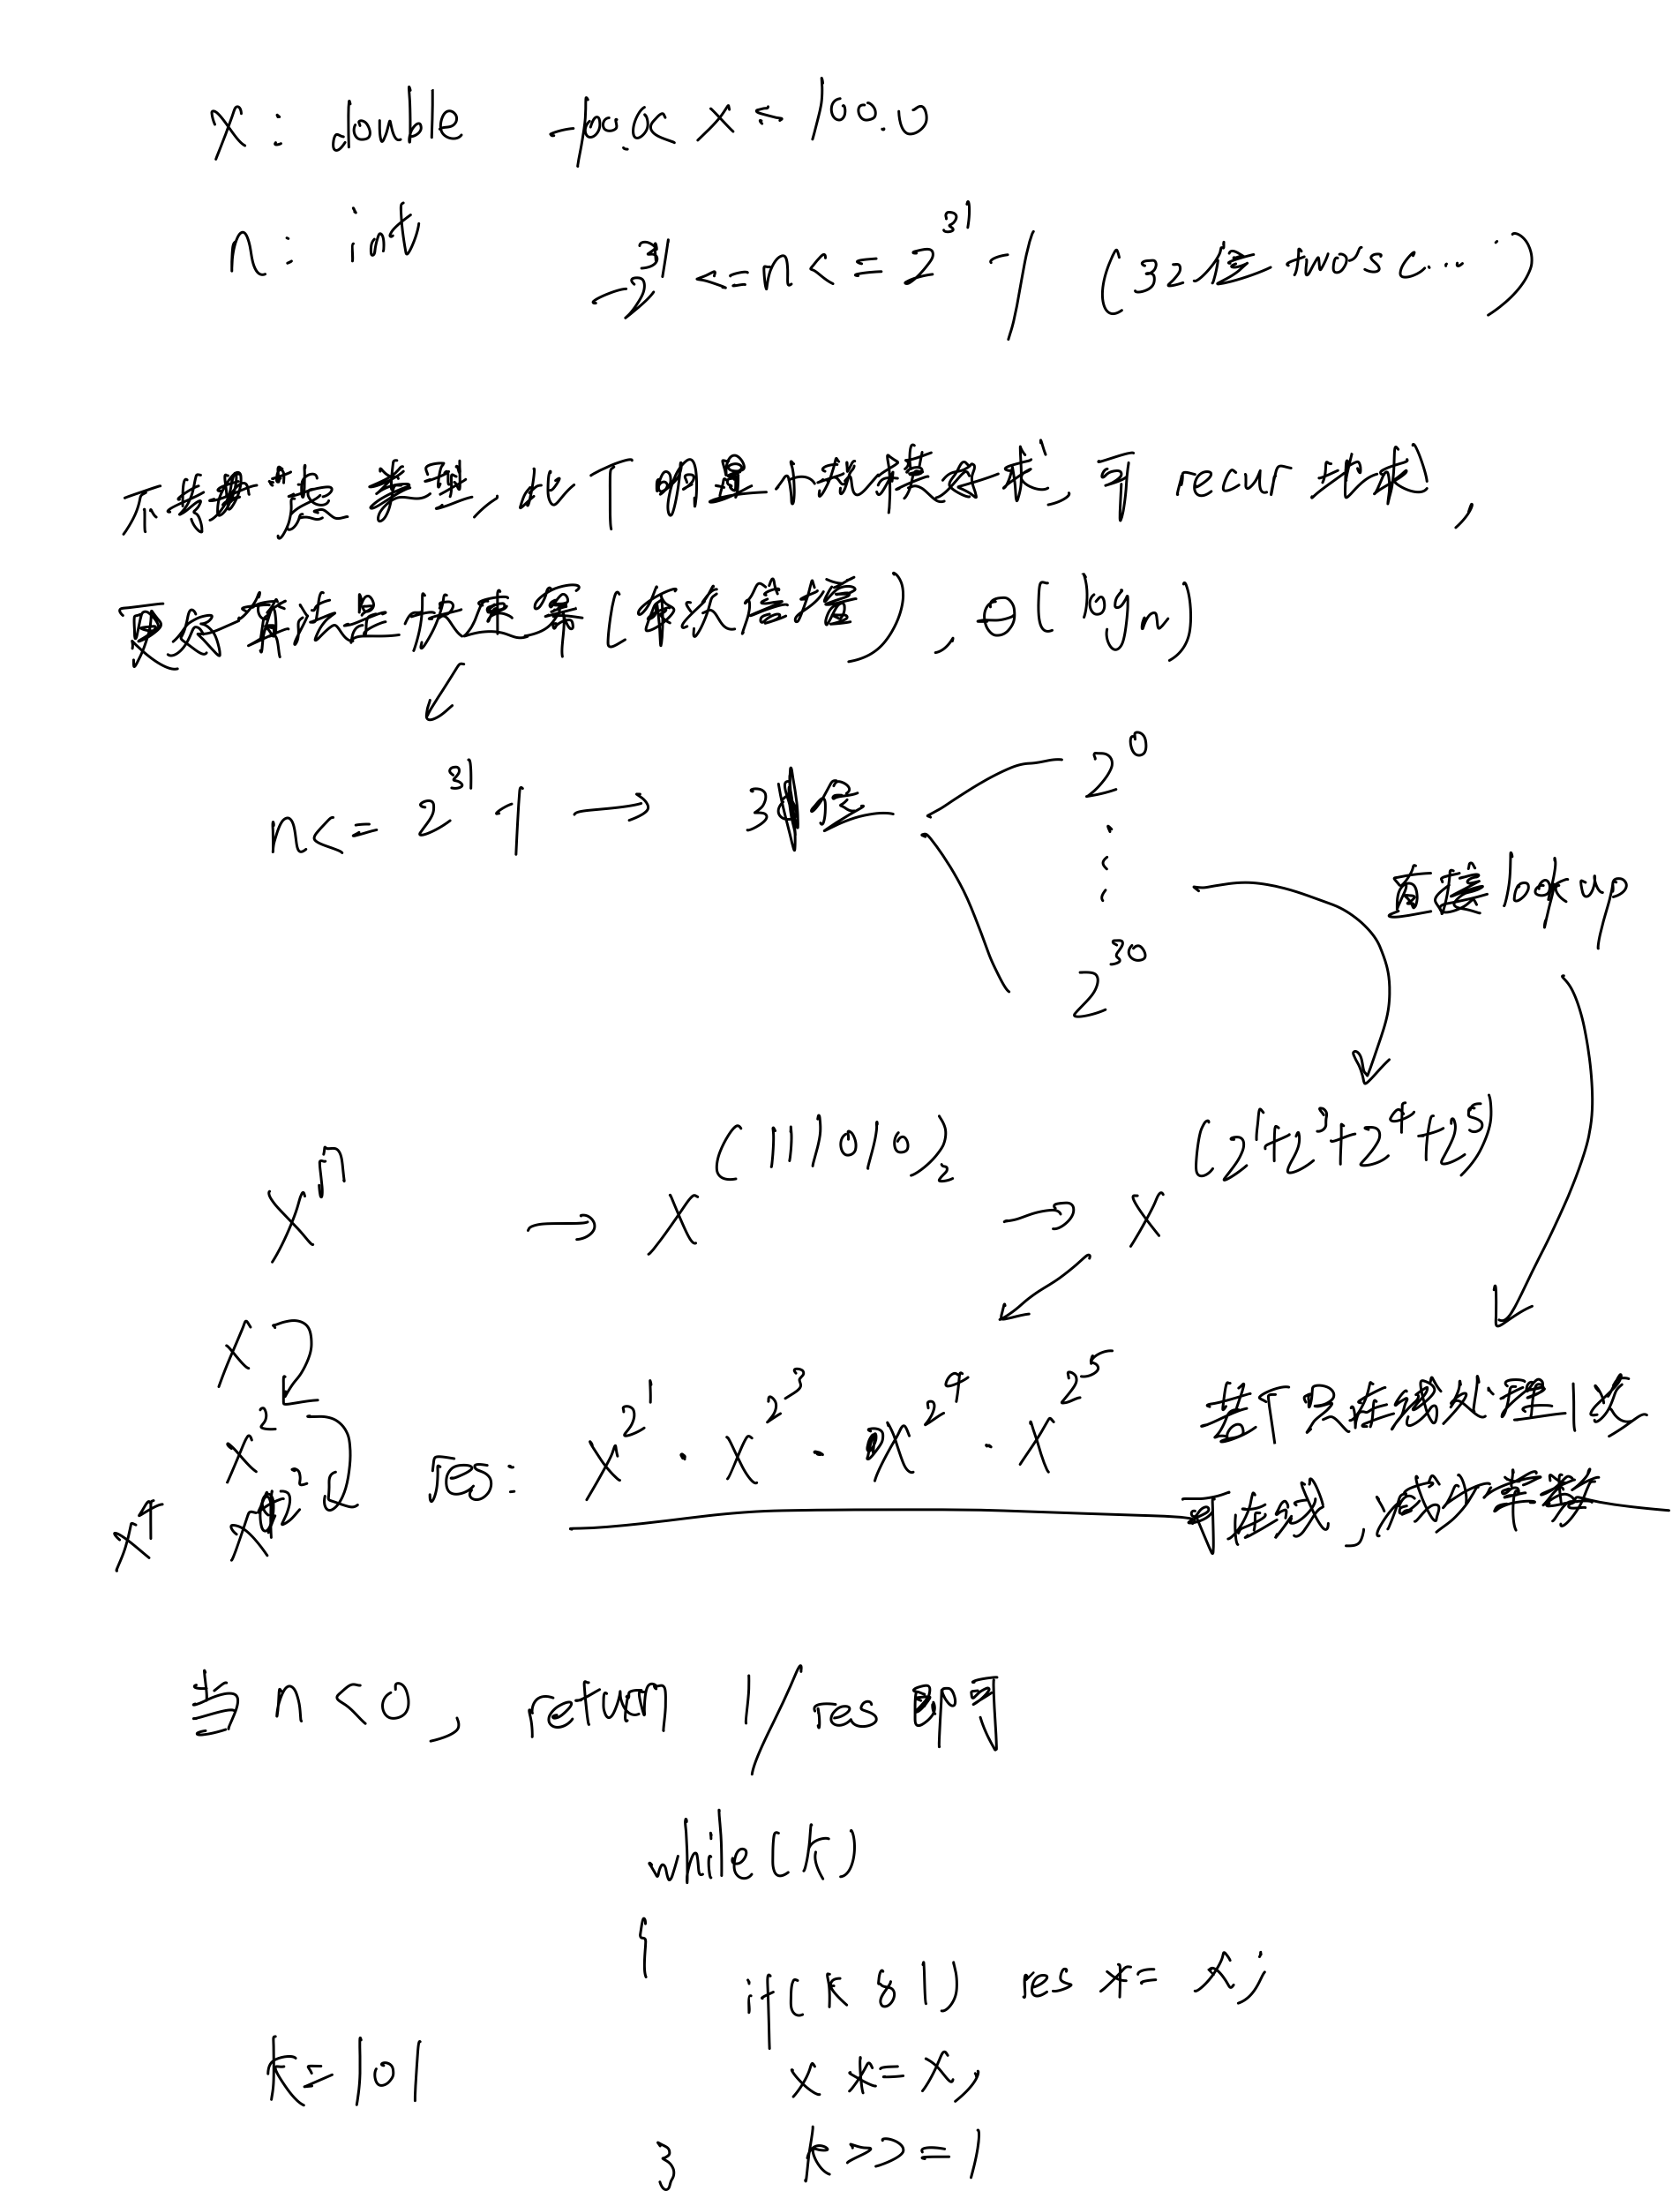 x: double -100.0< x < 100.0
n: int -2^31 <= n <= 2^31 - 1 (32位 twos c... )
不考虑 类型, 此下明显小规模需求, 可 recur 地求,
更好算法是快速幂 (每次倍增), O(logn)
n <= 2^31 - 1 → 31位 2^0
⋮
2^30
直接 lookup
x^n → x^(111010)₂ → x^(2^1+2^3+2^4+2^5)
x
x^2
x^4 x^2^2
res: x^2^1 · x^2^3 · x^2^4 · x^2^5
若下只在线处理1次
可在线, 减少常数
当 n < 0, return 1/res 即可
while(k)
{
if(k & 1) res *= x;
k=101 x *= x;
} k >>= 1